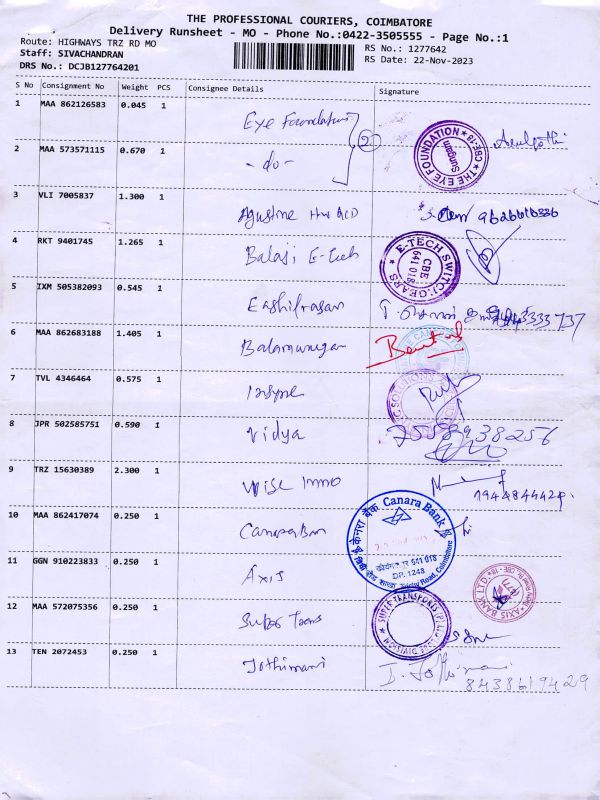 THE PROFESSIONAL COURIERS, COIMBATORE
Delivery Runsheet - MO - Phone No.:0422-3505555 - Page No.:1
Route: HIGHWAYS TRZ RD MO
RS No.: 1277642
Staff: SIVACHANDRAN
RS Date: 22-Nov-2023
DRS No.: DCJB127764201
S No Consignment No Weight PCS Consignee Details Signature
1 MAA 862126583 0.045 1 Eye Foundation
2
CBE-18 * THE EYE FOUNDATION * Sungam
2 MAA 573571115 0.670 1 -do-
3 VLI 7005837 1.300 1
4 RKT 9401745 1.265 1 Balaji E-Tech
E-TECH SWITCHGEARS CBE 641 018
5 IXM 505382093 0.545 1
6 MAA 862683188 1.405 1 Balamurugan
7 TVL 4346464 0.575 1
8 JPR 502585751 0.590 1 Vidya 7558938256
9 TRZ 15630389 2.300 1 Wise Immo
10 MAA 862417074 0.250 1
केनरा बैंक Canara Bank
641 018
DP. 1248
Trichy Road, Coimbatore
11 GGN 910223833 0.250 1 Axis
AXIS BANK LTD.
12 MAA 572075356 0.250 1 Super Trans
SUPER TRANSPORTS (P) LTD
13 TEN 2072453 0.250 1 Jothimani
8438619429